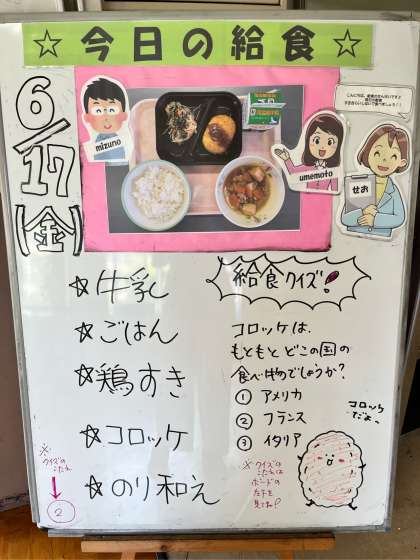 ☆今日の給食☆
6/17
【金】
mizuno
umemoto
せお
☆牛乳
☆ごはん
☆鶏すき
☆コロッケ
☆のり和え
給食クイズ!
コロッケは、
もともと どこの国の
食べ物でしょうか?
① アメリカ
② フランス
③ イタリア
コロッケ
だよ〜
※クイズの
こたえは
ボードの
左下を
見てね
※
クイズの
こたえ
↓
②